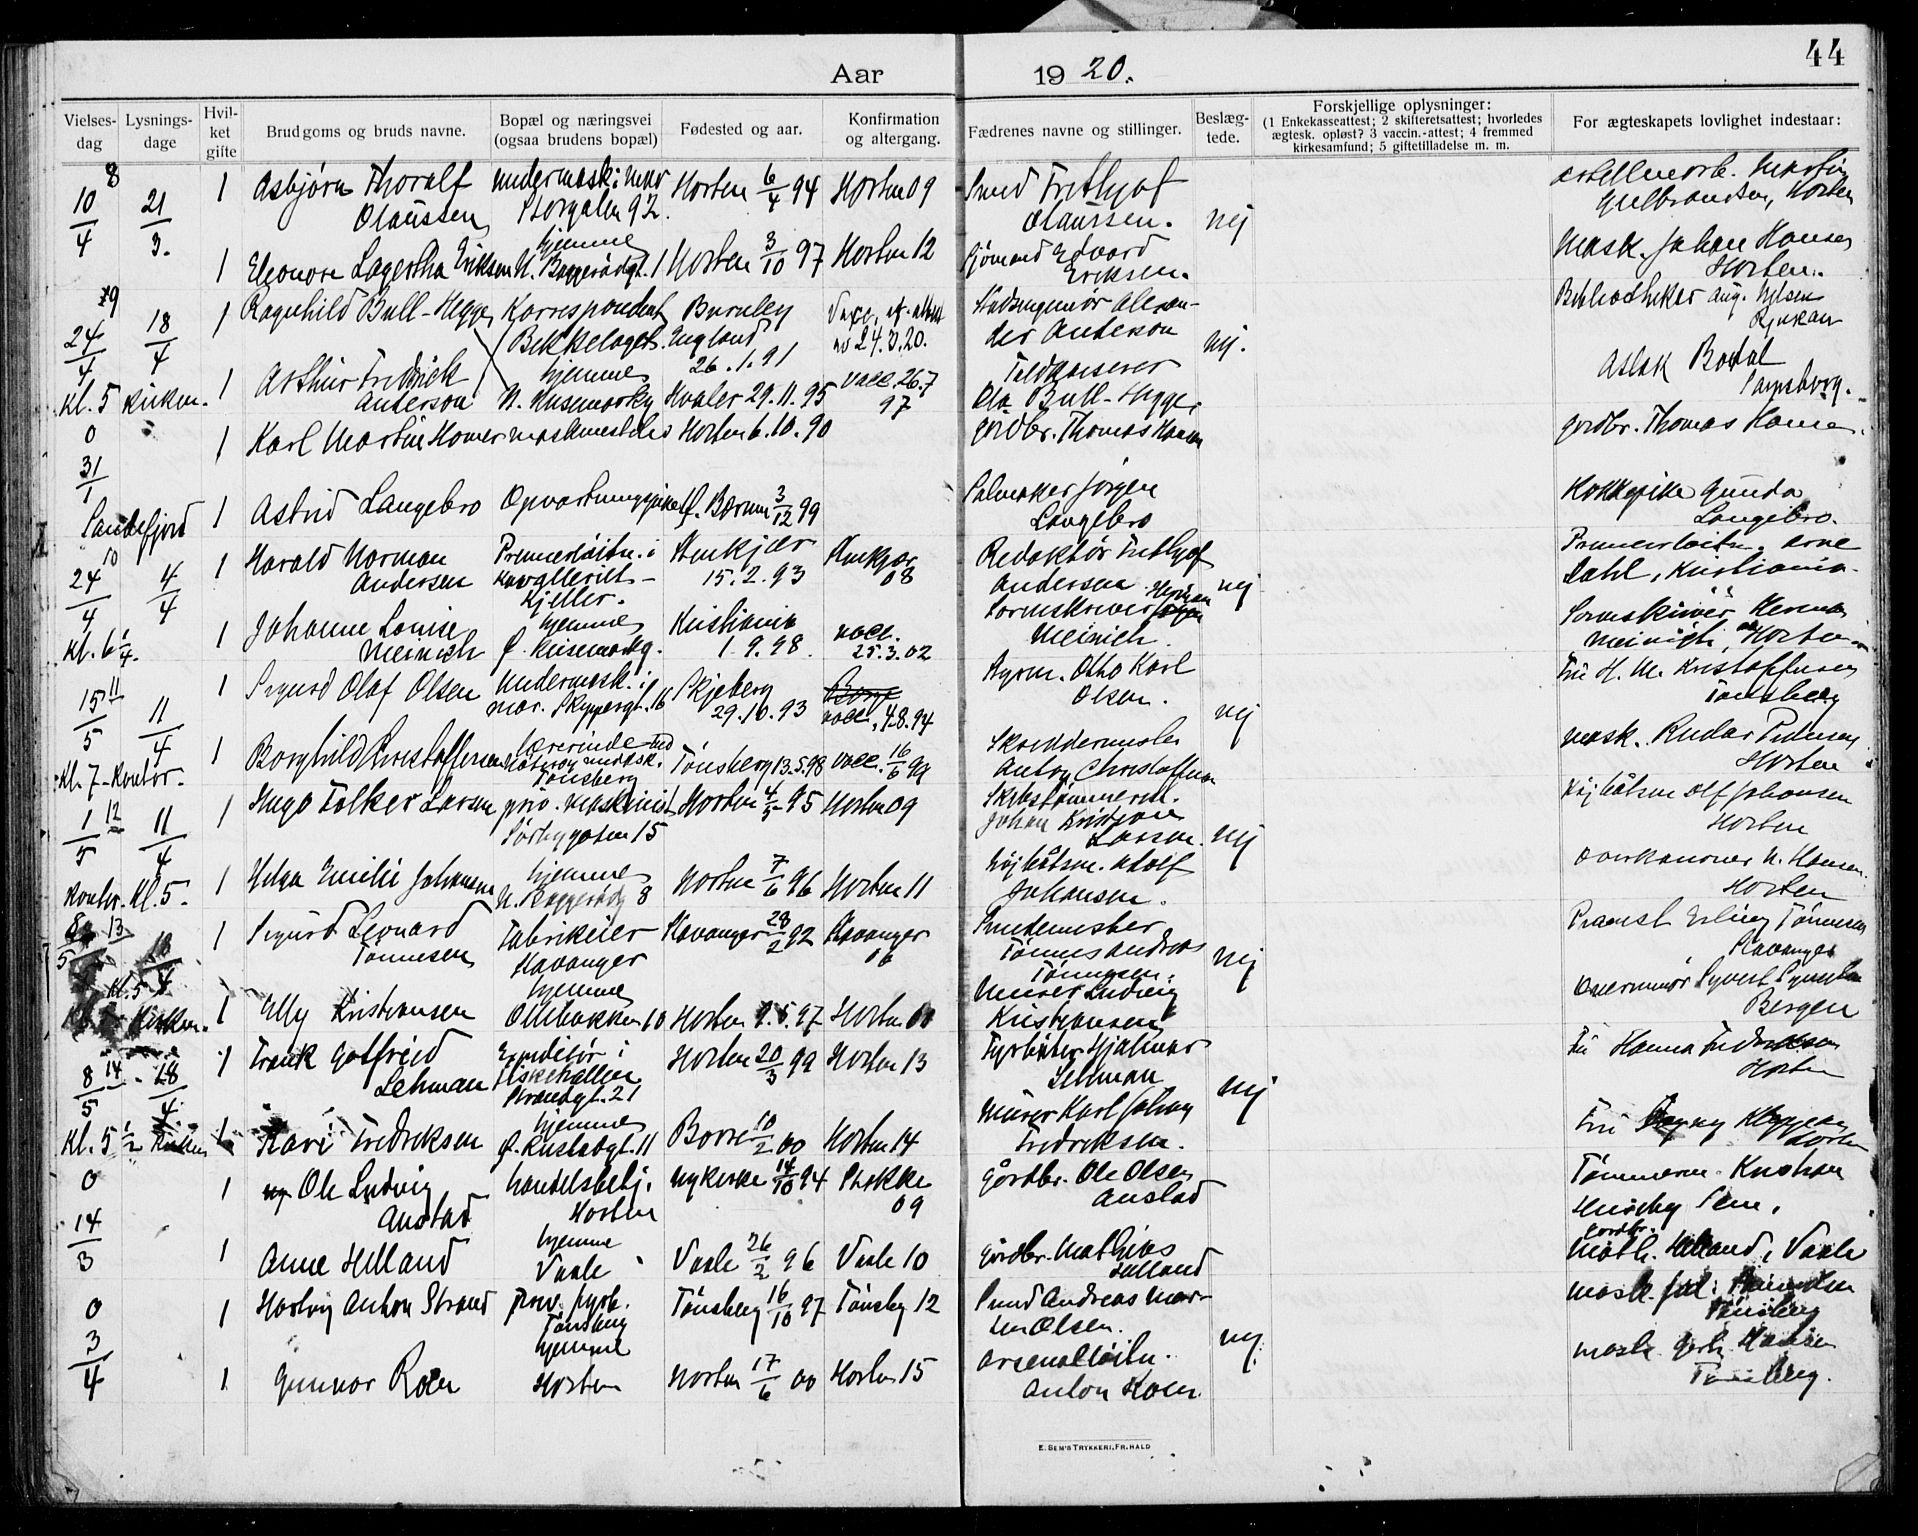 44
Aar 1920.
Vielses-dag
Lysnings-dage
Hvil-ket gifte
Brudgoms og bruds navne.
Bopæl og næringsvei (ogsaa brudens bopæl)
Fødested og aar.
Konfirmation og altergang.
Fædrenes navne og stillinger.
Beslæg-tede.
Forskjellige oplysninger:
(1 Enkekasseattest; 2 skifteretsattest; hvorledes
ægtesk. opløst? 3 vaccin.-attest; 4 fremmed
kirkesamfund; 5 giftetilladelse m. m.
For ægteskapets lovlighet indestaar:
8
10/4 21/3. 1 Asbjørn Thoralf Olaussen
Undermask. i Storgaten 92.
Horten 6/4 94 Horten 09
Smed Frithjof Olaussen. nej
Martin Gulbrandsen, Horten
1 Eleonore Lagertha Eriksen
hjemme N. Baggerødgt. 1
Horten 3/10 97 Horten 12
Sjømand Edvard Eriksen.
Mask. Johan Hansen Horten.
9
24/4 18/4 1 Ragnhild Bull-Hegge
Korrespondent Bekkelaget.
Burnley England 26.1.91
24.3.20.
Anderson nej.
Bibliothekar Aug. Nilsen Rjukan
Kl. 5 kirken. 1 Arthur Fredrick Anderson
hjemme N. Husemarky
Hvaler 29.11.95 vacc. 26.7 97
Toldkasserer Ola Bull-Hegge
Aslak Bodal Sarpsborg.
0
31/1 1 Karl Martin Hansen
maskinist
Horten 6.10.90
gårdbr. Thomas Hansen
gårdbr. Thomas Hansen.
Sandefjord 1 Astrid Langebro
Opvartningspike
Ø. Bærum 3/12 99
Salmaker Jørgen Langebro
Kokkepike Gunda Langebro.
10
24/4 4/4 1 Harald Norman Andersen
Premierløitn. i kavalleriet - Kjeller.
Stenkjær 15.2.93 Stenkjær 08
Redaktør Frithjof Andersen nej
Premierløitn. Arne Dahl, Kristiania
Kl. 6 1/4. 1 Johanne Louise Meinich
hjemme Ø. Husemarkg.
Kristiania 1.9.98. vacc. 25.3.02
Sorenskriver Herman Meinich.
Sorenskriver Herman Meinich, Horten
11
15/5 11/4 1 Sigurd Olaf Olsen
Undermask. i mar. Skippergt. 16
Skjeberg 29.10.93 vacc. 4.8.94
Styrm. Otto Karl Olsen. nej
Fru H. M. Kristoffersen Tønsberg
Kl. 7 - Kontor. 1 Borghild Kristoffersen
lærerinde ved Tønsberg
Tønsberg 13.5.98 vacc. 16/6 99
Skreddermester Anton Christoffersen
Mask. Reidar Pedersen Horten
12
1/5 11/4 1 Hugo Folker Larsen
priv. maskinist Sørbygaten 15
Horten 4/5 95 Horten 09
Skibstømmerm. Johan Kristian Larsen. nej
Høibåtsm. Olf Johansen Horten
Kontor. Kl. 5. 1 Helga Emilie Johansen
hjemme N. Baggerødg 8
Horten 7/6 96 Horten 11
Høibåtsm. Adolf Johansen.
overkanoner N. Hansen. Horten
13
8/5 18/4 1 Sigurd Leonard Tønnesen
Fabrikeier Stavanger
Stavanger 28/2 92 Stavanger
Smedemester Tønnes Andreas Tønnesen. nej
Erling Tønnesen Stavanger
Kl. 5 Kirken. 1 Elly Kristiansen
hjemme Ollebakken 10
Horten 9.5.97 Horten
Murer Ludvig Kristiansen
Overminør Syvert Bergen
14
8/5 18/4 1 Frank Gotfried Lehman
Expeditør i Fiskehallen Strandgt. 21
Horten 20/3 99 Horten 13
Fyrbøter Hjalmar Lehman nej
Fru Hanna Fredriksen Horten
Kl. 5 1/2 Kirken 1 Kari Fredriksen
hjemme Ø. Kustadgt. 11
Borre 10/2 00 Horten 14
Murer Karl Johan Fredriksen.
Fru Horten
0
14/3 1 Ole Ludvig Anstad
handelsbetj. Horten
Nykirke 14/10 94 Stokke 09
Gårdbr. Ole Olsen Anstad
Tømmerm. Kristian Sem.
1 Anne Helland
hjemme Vaale
Vaale 26/2 96 Vaale 10
Gårdbr. Mathias Helland
gårdbr. Math. Helland, Vaale
0
3/4 1 Hartvig Anton Strand
prov. fyrb. Tønsberg
Tønsberg 16/10 97 Tønsbg 12
Smed Andreas Martin Olsen. nej.
Tønsberg
1 Gunvor Roer
hjemme Horten
Horten 17/6 00 Horten 15
Arsenalløitn. Anton Roer
Tønsberg.
E. SEM'S TRYKKERI, FR.HALD